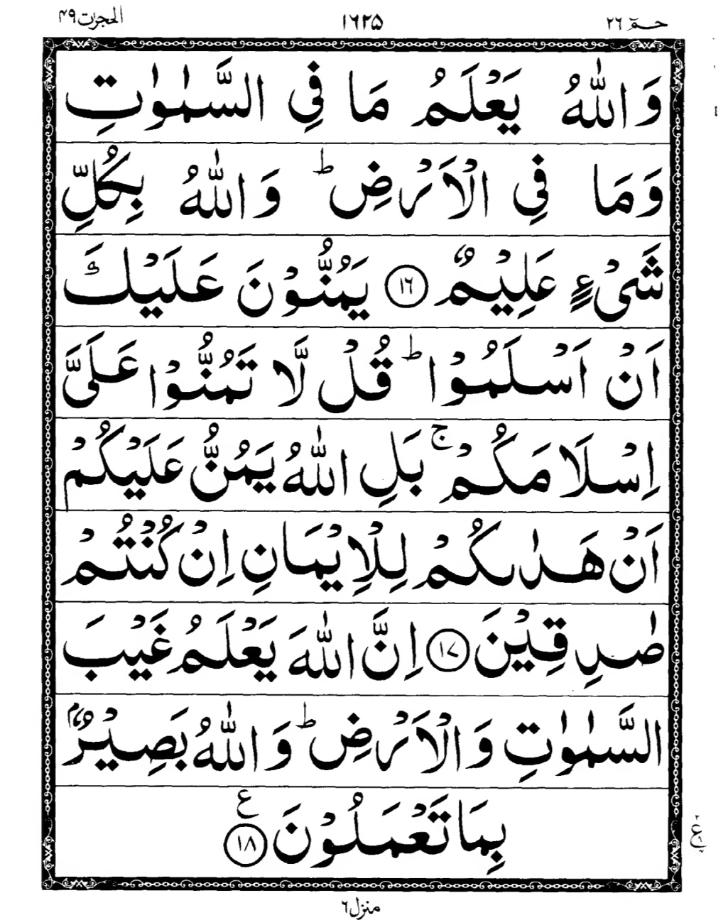 حٰمٓ ٢٦ ١٦٢٥ الحجرٰت ٤٩
وَاللّٰهُ يَعْلَمُ مَا فِي السَّمٰوٰتِ
وَمَا فِي الْاَرْضِ ؕ وَاللّٰهُ بِكُلِّ
شَيْءٍ عَلِيْمٌ ⑯ يَمُنُّوْنَ عَلَيْكَ
اَنْ اَسْلَمُوْا ؕ قُلْ لَّا تَمُنُّوْا عَلَيَّ
اِسْلَامَكُمْ ۚ بَلِ اللّٰهُ يَمُنُّ عَلَيْكُمْ
اَنْ هَدٰىكُمْ لِلْاِيْمَانِ اِنْ كُنْتُمْ
صٰدِقِيْنَ ⑰ اِنَّ اللّٰهَ يَعْلَمُ غَيْبَ
السَّمٰوٰتِ وَالْاَرْضِ ؕ وَاللّٰهُ بَصِيْرٌۢ
بِمَا تَعْمَلُوْنَ ⑱ ع
منزل ٦